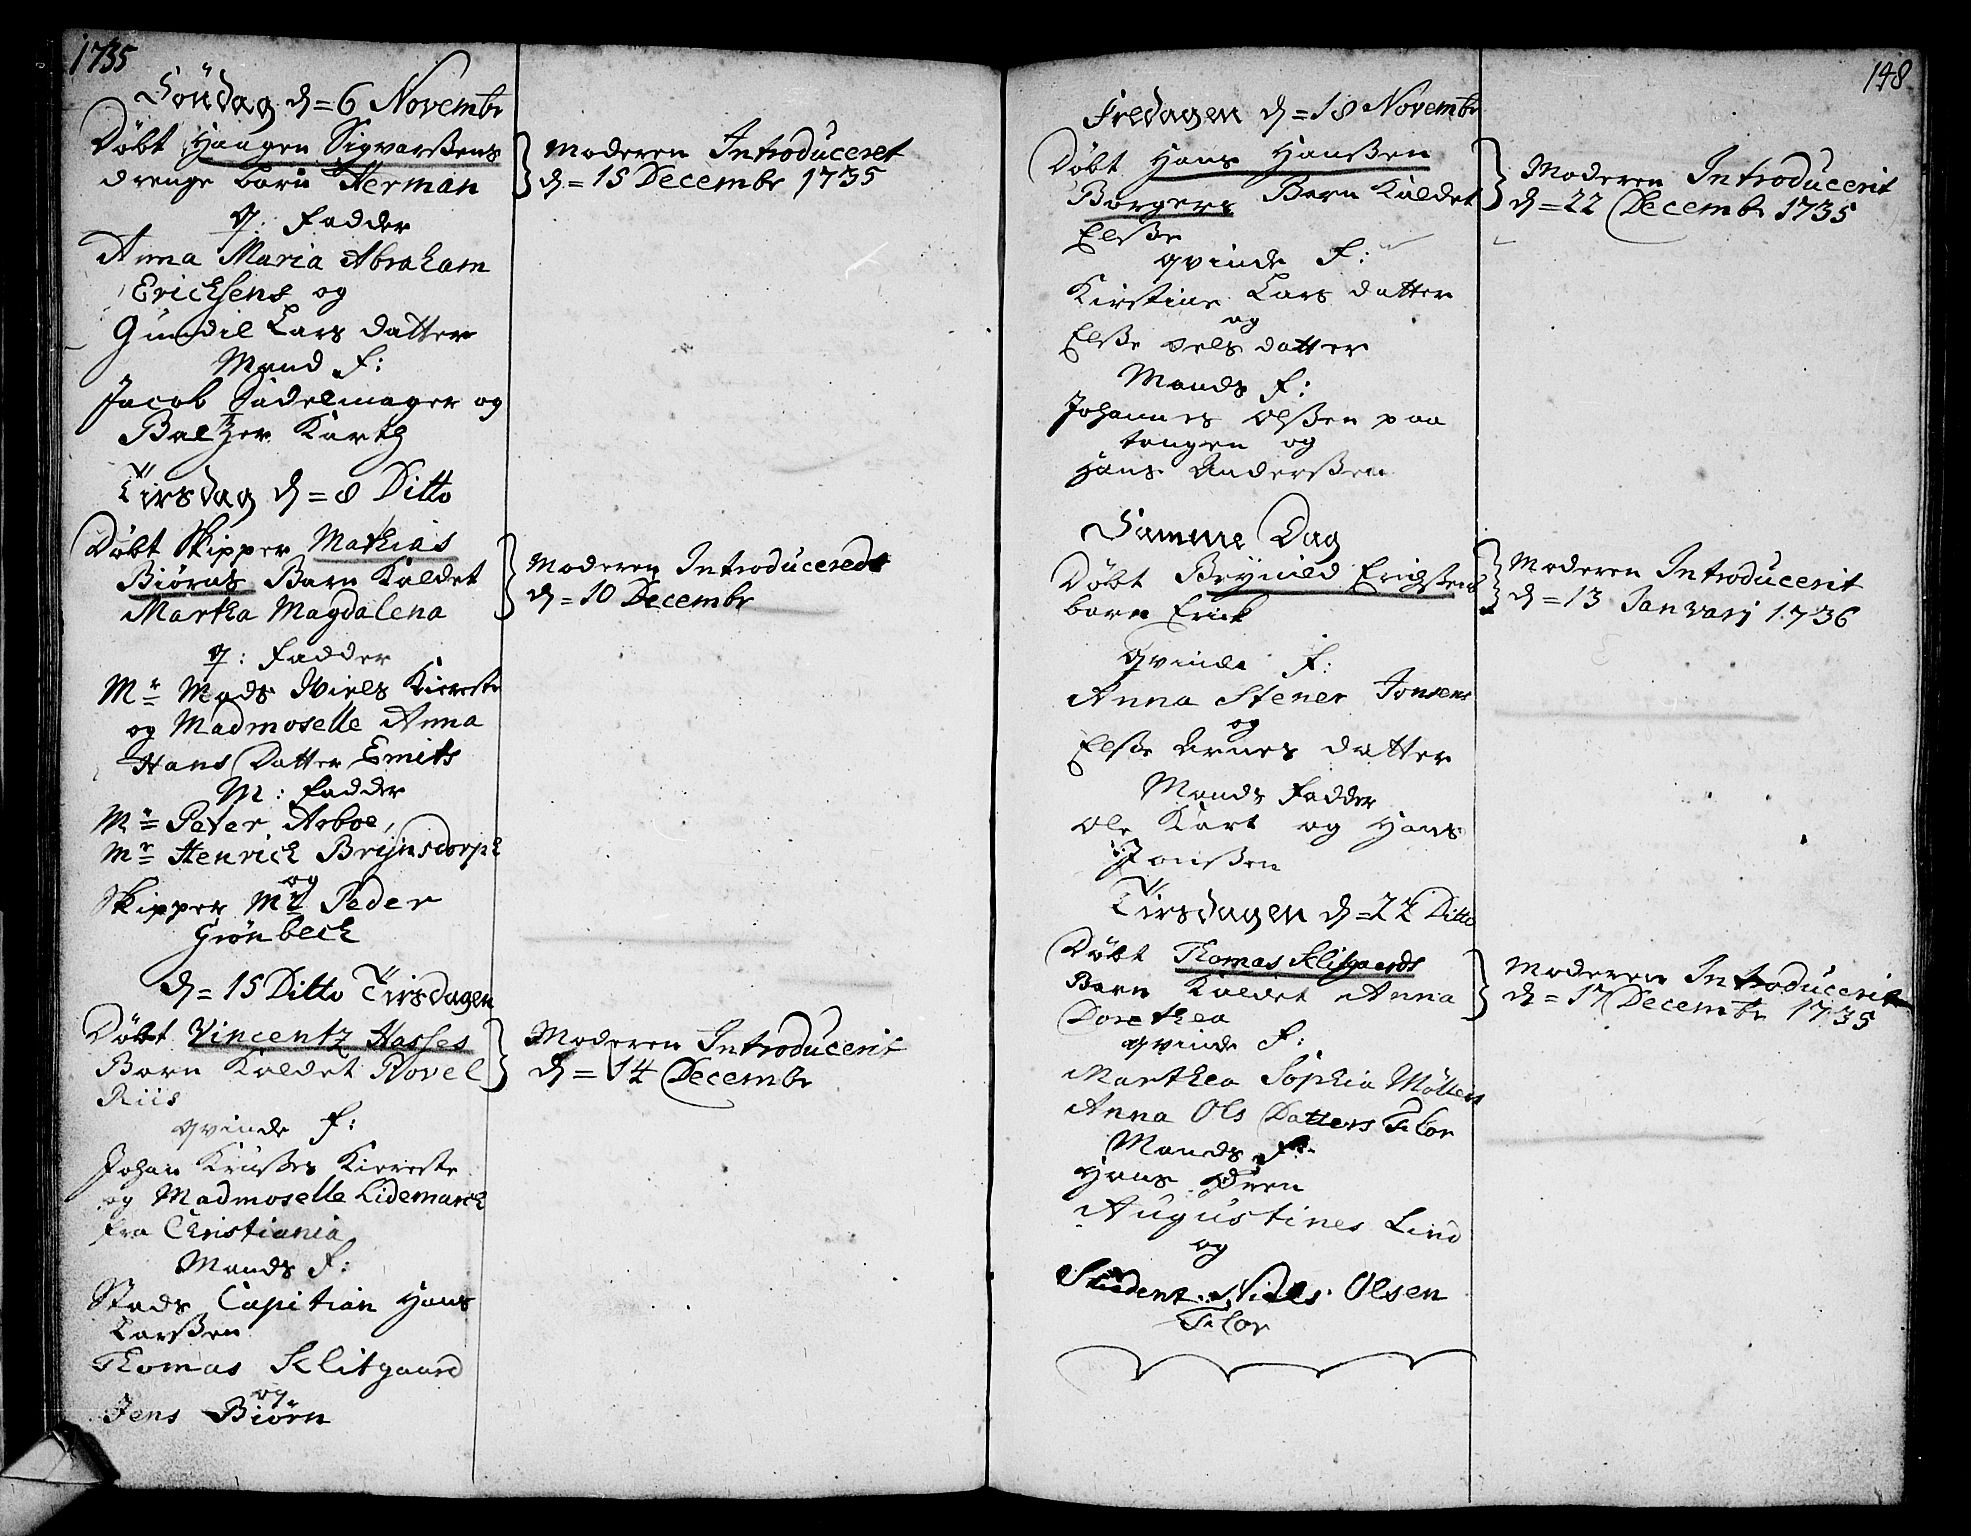 1735
Söndag d= 6 Novembr
Döbt Haagen Sigvarßens
drenge barn Herman
q: fadder
Anna Maria Abraham
Ericksens og
Gundil Lars datter
Mand f:
Jacob Sadelmager og
Baltzer Kurtz
Tirsdag d= 8 Ditto
Döbt Skipper Mathias
Biörns Barn Kaldet
Martha Magdalena
q: fadder
Mr Mads Wiels Kiereste
og Madmoselle Anna
Hans Datter Smith
M: fadder
Mr Peter Arboe,
Mr Henrich Brijnsdorph
og
Skipper Mr Peder
Grönbech
d= 15 Ditto Tirsdagen
Döbt Vincentz Hasses
Barn Kaldet Povel
Riis
qvinde f:
Johan Krußes Kiereste
og Madmoselle Lidemarck
fra Christiania
Mands f:
Stads Capitian Hans
Larßen
Thomas Klitgaard
og
Jens Biörn
Moderen Introduceret
d= 15 Decembr 1735
Moderen Introduceredt
d= 10 Decembr
Moderen Introducerit
d= 14 Decembr
148
Fredagen d= 18 Novembr
Döbt Hans Hanßen
Borgers Barn Kaldet
Elße
qvinde f:
Kirstine Lars datter
og
Elße Pels datter
Mands f:
Johannes Olßen paa
tangen og
Hans Anderßen
Samme Dag
Döbt Brynild Erichßens
barn Erick
qvinde f:
Anna Stener Jonsens
og
Elße Arnes datter
Mands fadder
Ole Kart og Hans
Jonßen
Tirsdagen d= 22 Ditto
Döbt Thomas Klitgaards
Barn Kaldet Anna
Dorethea
qvinde f:
Marthea Sophia Möllers
Anna Ols Datters Flor
Mands f:
Hans Ören
Augustines Lind
og
Student Niels Olsen
Flor
Moderen Introducerit
d= 22 Decembr 1735
Moderen Introducerit
d= 13 Janvarj 1736
Moderen Introducerit
d= 17 Decembr 1735